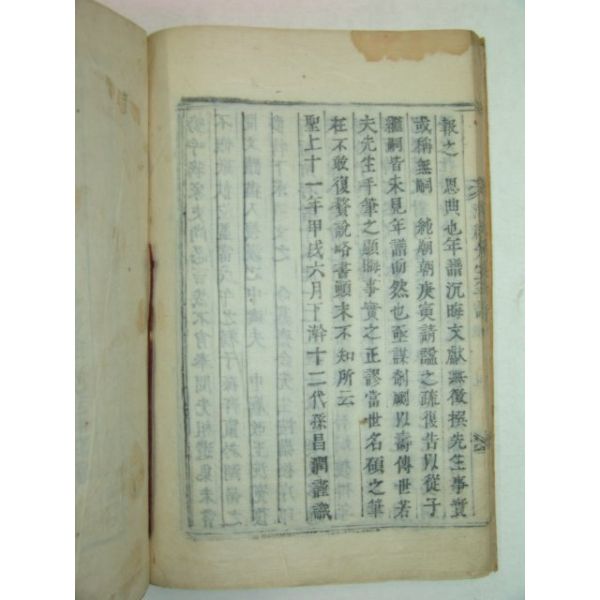 報之 恩典也年譜沉晦文獻無徵撰先生事實
或稱無嗣 純廟朝庚寅請諡之疏復告以從子
繼嗣皆未見年譜而然也亟謀剞劂以壽傳世若
夫先生手筆之顯晦事實之正謬當世名碩之筆
在不敢復贅說略書顚末不知所云
聖上十一年甲戌六月下澣十二代孫昌潤謹識